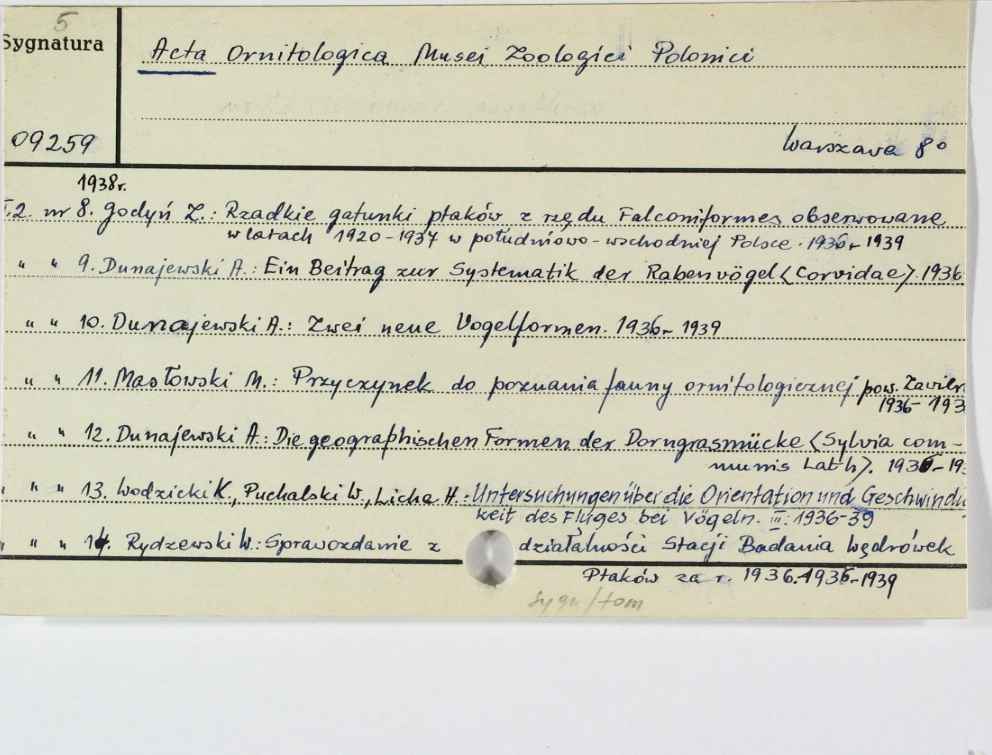 5
Sygnatura
Acta Ornitologica Musei Zoologici Polonici
09259
Warszawa 8°
1938r.
T.2. nr 8. Godyń Z.: Rzadkie gatunki ptaków z rzędu Falconiformes obserwowane
w latach 1920-1937 w południowo-wschodniej Polsce. 1936-1939
" " 9. Dunajewski A.: Ein Beitrag zur Systematik der Rabenvögel <Corvidae>. 1936
" " 10. Dunajewski A.: Zwei neue Vogelformen. 1936-1939
" " 11. Masłowski M.: Przyczynek do poznania fauny ornitologicznej pow. Zawier
1936-193
" " 12. Dunajewski A.: Die geographischen Formen der Dorngrasmücke <Sylvia com-
munis Lath>. 1936-19
" " 13. Wodzicki K., Puchalski W., Liche H.: Untersuchungen über die Orientation und Geschwindi
keit des Fluges bei Vögeln. III: 1936-39
" " 14. Rydzewski W.: Sprawozdanie z działalności Stacji Badania Wędrówek
Ptaków za r. 1936. 1936-1939
sygn/tom